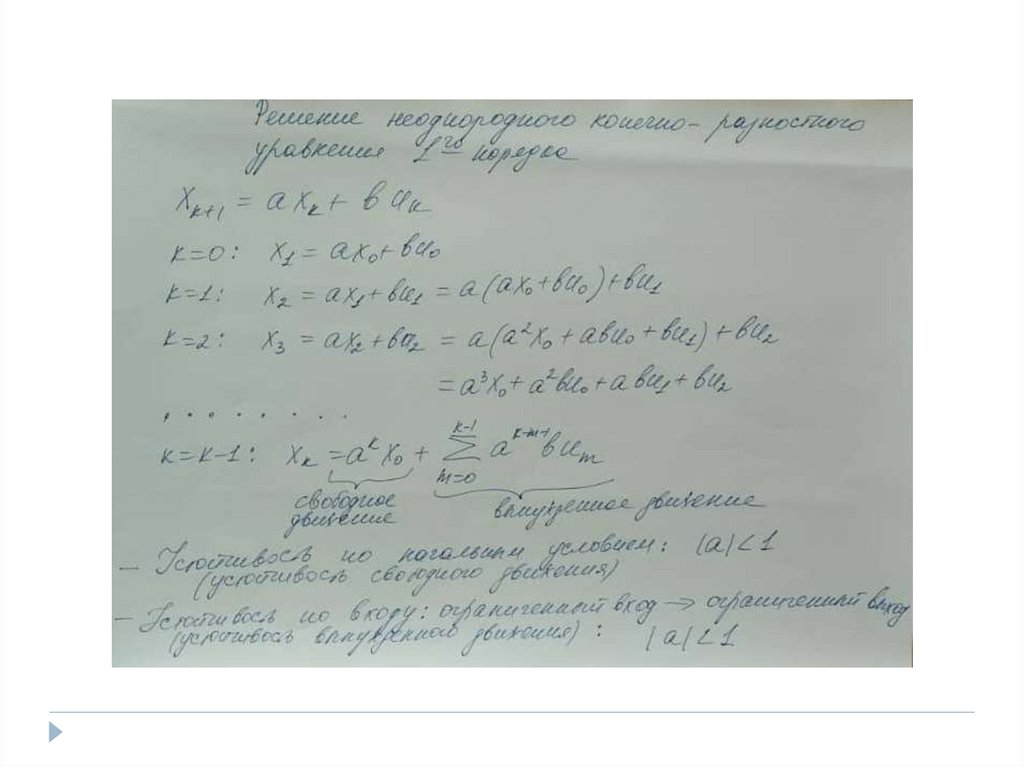 Решение неоднородного конечно-разностного
уравнения 1го порядка
x_{k+1} = a x_k + в u_k
к=0: x_1 = ax_0 + вu_0
к=1: x_2 = ax_1 + вu_1 = a(ax_0 + вu_0) + вu_1
к=2: x_3 = ax_2 + вu_2 = a(a^2x_0 + aвu_0 + вu_1) + вu_2
= a^3x_0 + a^2вu_0 + aвu_1 + вu_2
. . . . . . . .
к=к-1: x_k = a^k x_0 + \sum_{m=0}^{k-1} a^{k-m-1} вu_m
свободное движение
вынужденное движение
— Устойчивость по начальным условиям: |a| < 1
(устойчивость свободного движения)
— Устойчивость по входу: ограниченный вход → ограниченный выход
(устойчивость вынужденного движения): |a| < 1